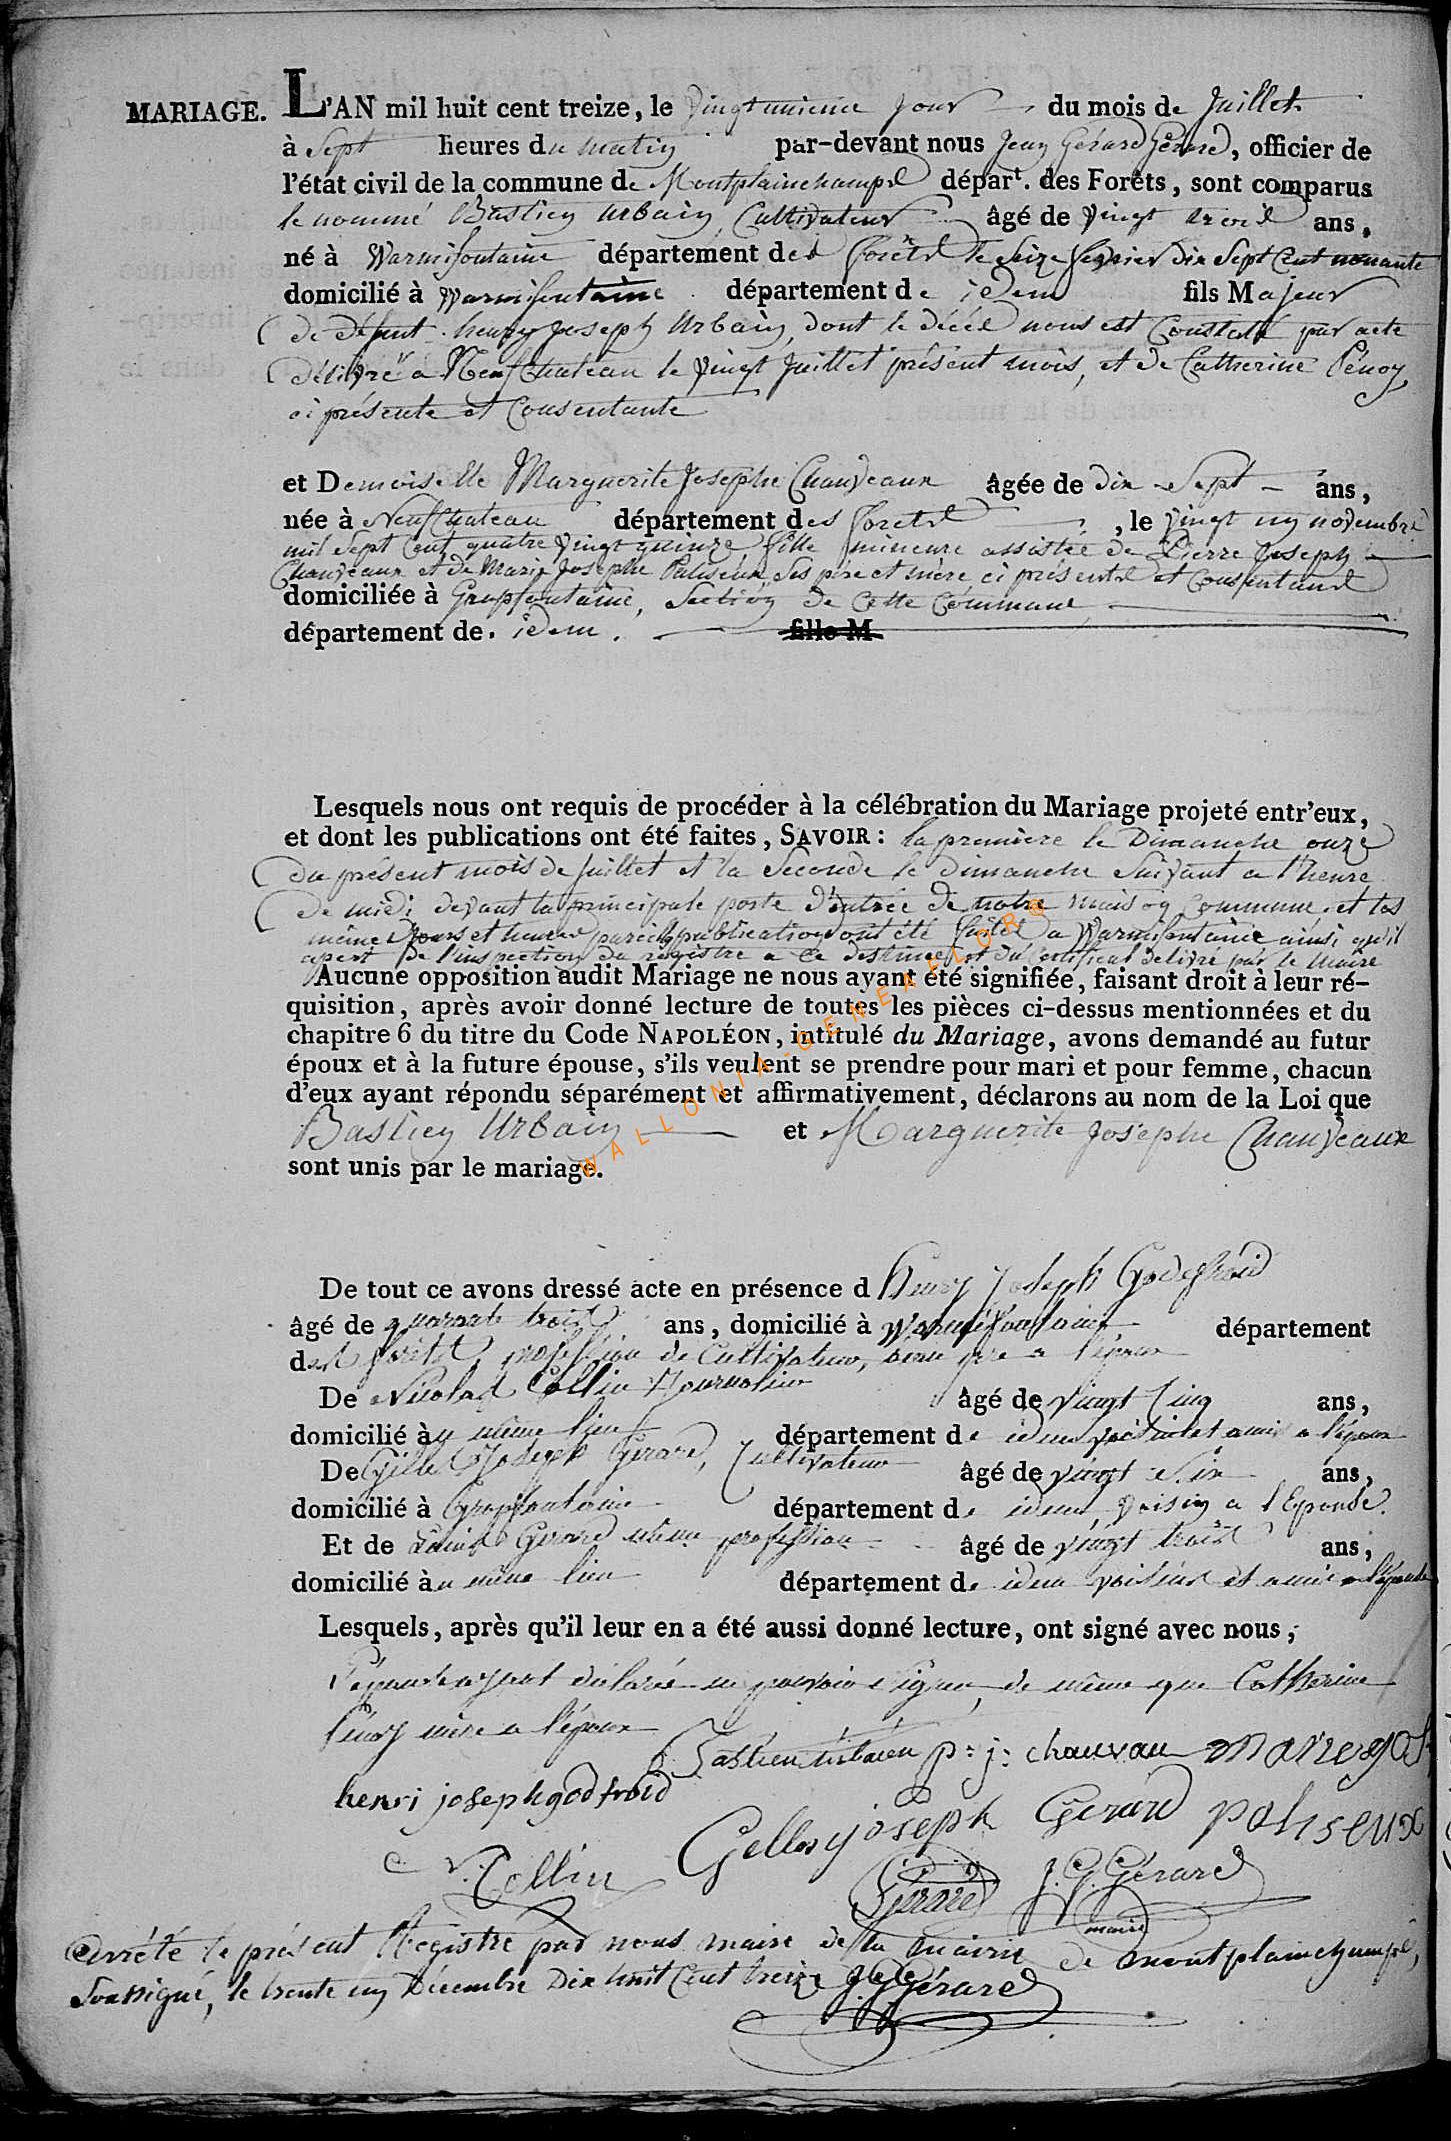 MARIAGE. L'AN mil huit cent treize, le vingt unieme jour du mois de Juillet
à Sept heures du matin par-devant nous Jean Gérard Gérard, officier de
l'état civil de la commune de Montplainchamps départ. des Forêts, sont comparus
le nommé Bastien Urbain, Cultivateur âgé de vingt trois ans,
né à Warmifontaine département des forêts le seize fevrier dix sept cent nonante
domicilié à Warmifontaine département de idem fils Majeur
de défunt henry Joseph Urbain, dont le décès nous est constaté par acte
délivré a Neufchateau le vingt Juillet présent mois, et de Catherine Pénoy
ci présente et consentante
et Demoiselle Marguerite Josephe Chauveaux âgée de dix Sept ans,
née à Neufchateau département des forets, le vingt un novembre
mil sept cent quatre vingt quinze, fille mineure assistée de Pierre Joseph
Chauveaux et de Marie Josephe Paliseux ses père et mère ci présents et consentants
domiciliée à Grapfontaine, section de cette commune
département de idem. fille M
Lesquels nous ont requis de procéder à la célébration du Mariage projeté entr'eux,
et dont les publications ont été faites, SAVOIR: la première le Dimanche onze
du présent mois de Juillet et la Seconde le dimanche suivant a l'heure
de midi devant la principale porte d'entrée de notre maison commune, et les
même jours et heures pareilles publications ont été faites a Warmifontaine ainsi qu'il
apert de l'inspection du registre a ce destiné et du certificat délivré par le Maire
Aucune opposition audit Mariage ne nous ayant été signifiée, faisant droit à leur ré-
quisition, après avoir donné lecture de toutes les pièces ci-dessus mentionnées et du
chapitre 6 du titre du Code NAPOLÉON, intitulé du Mariage, avons demandé au futur
époux et à la future épouse, s'ils veulent se prendre pour mari et pour femme, chacun
d'eux ayant répondu séparément et affirmativement, déclarons au nom de la Loi que
Bastien Urbain et Marguerite Josephe Chauveaux
sont unis par le mariage.
WALLONIA-GENEAFLOR@
De tout ce avons dressé acte en présence d henry Joseph Godefroid
âgé de quarante trois ans, domicilié à Warmifontaine département
des forêts, profession de Cultivateur, a l'époux
De Nicolas Collin Journalier âgé de vingt cinq ans,
domicilié au même lieu département de idem voisin et ami a l'époux
De Gille Joseph Gérard, Cultivateur âgé de vingt six ans,
domicilié à Grapfontaine département de idem, voisin a l'Epouse
Et de Gerard même profession âgé de vingt trois ans,
domicilié au même lieu département de idem voisin et ami a l'épouse
Lesquels, après qu'il leur en a été aussi donné lecture, ont signé avec nous,
l'épouse ayant déclarée ne pouvoir signer, de même que Catherine
Pénoy mère a l'époux
Bastien urbain p: j: chauvau marie jos
henri joseph godfroid
Gelles joseph Gerard paliseux
N. Collin Gérard J. G. Gérard
maire
Arrêté le présent Registre par nous maire de la mairie de montplainchamps,
Soussigné, le trente un Décembre Dix huit Cent treize J. G. Gérard